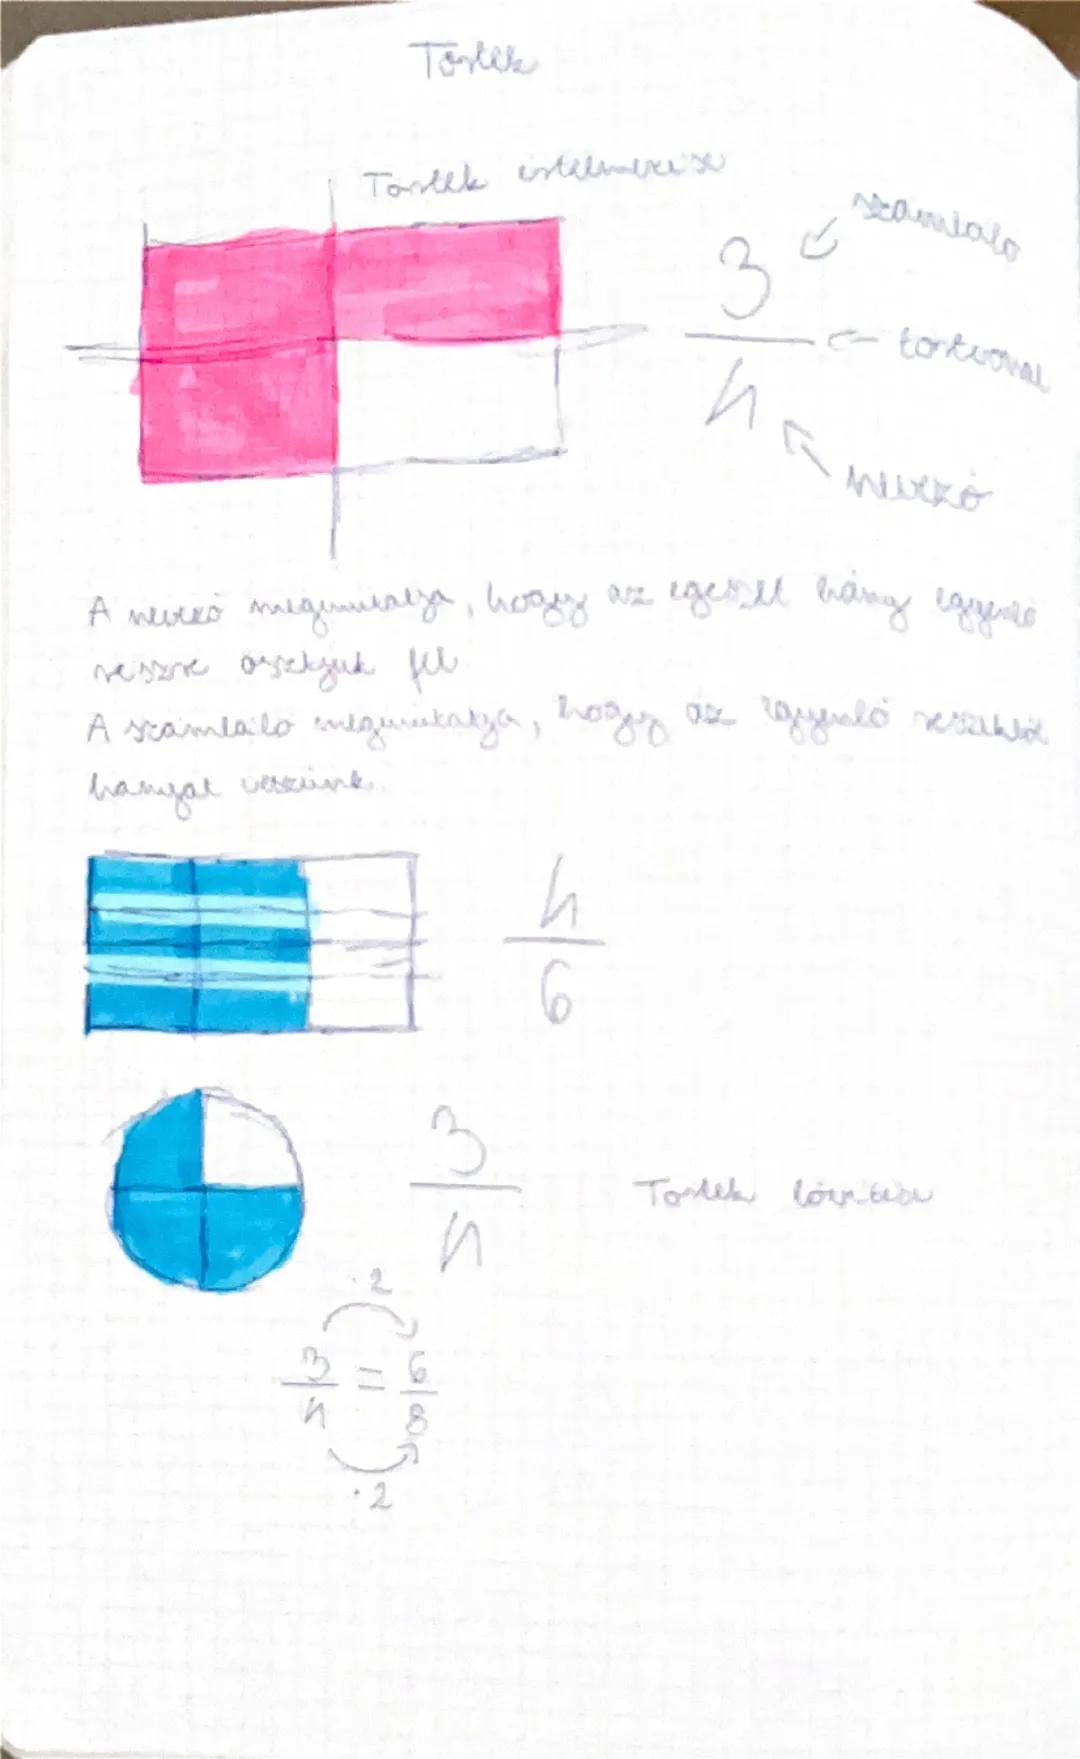 Törtek
Törtek értelmezése
számláló
3
törtvonal
4
nevező
A nevező megmutatja, hogy az egészet hány egyenlő
részre osztjuk fel
A számláló megmutatja, hogy az egyenlő részekből
hányat veszünk.
4
6
3
4
Törtek bővítése
·2
3 = 6
4 8
·2